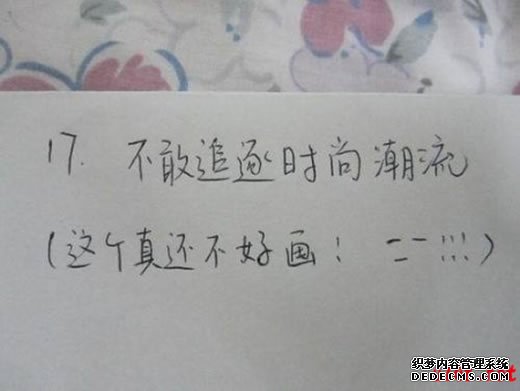 17. 不敢追逐时尚潮流
(这个真还不好画! 二一!!!)
织梦内容管理系统
HTTP://WWW.DEDECMS.COM